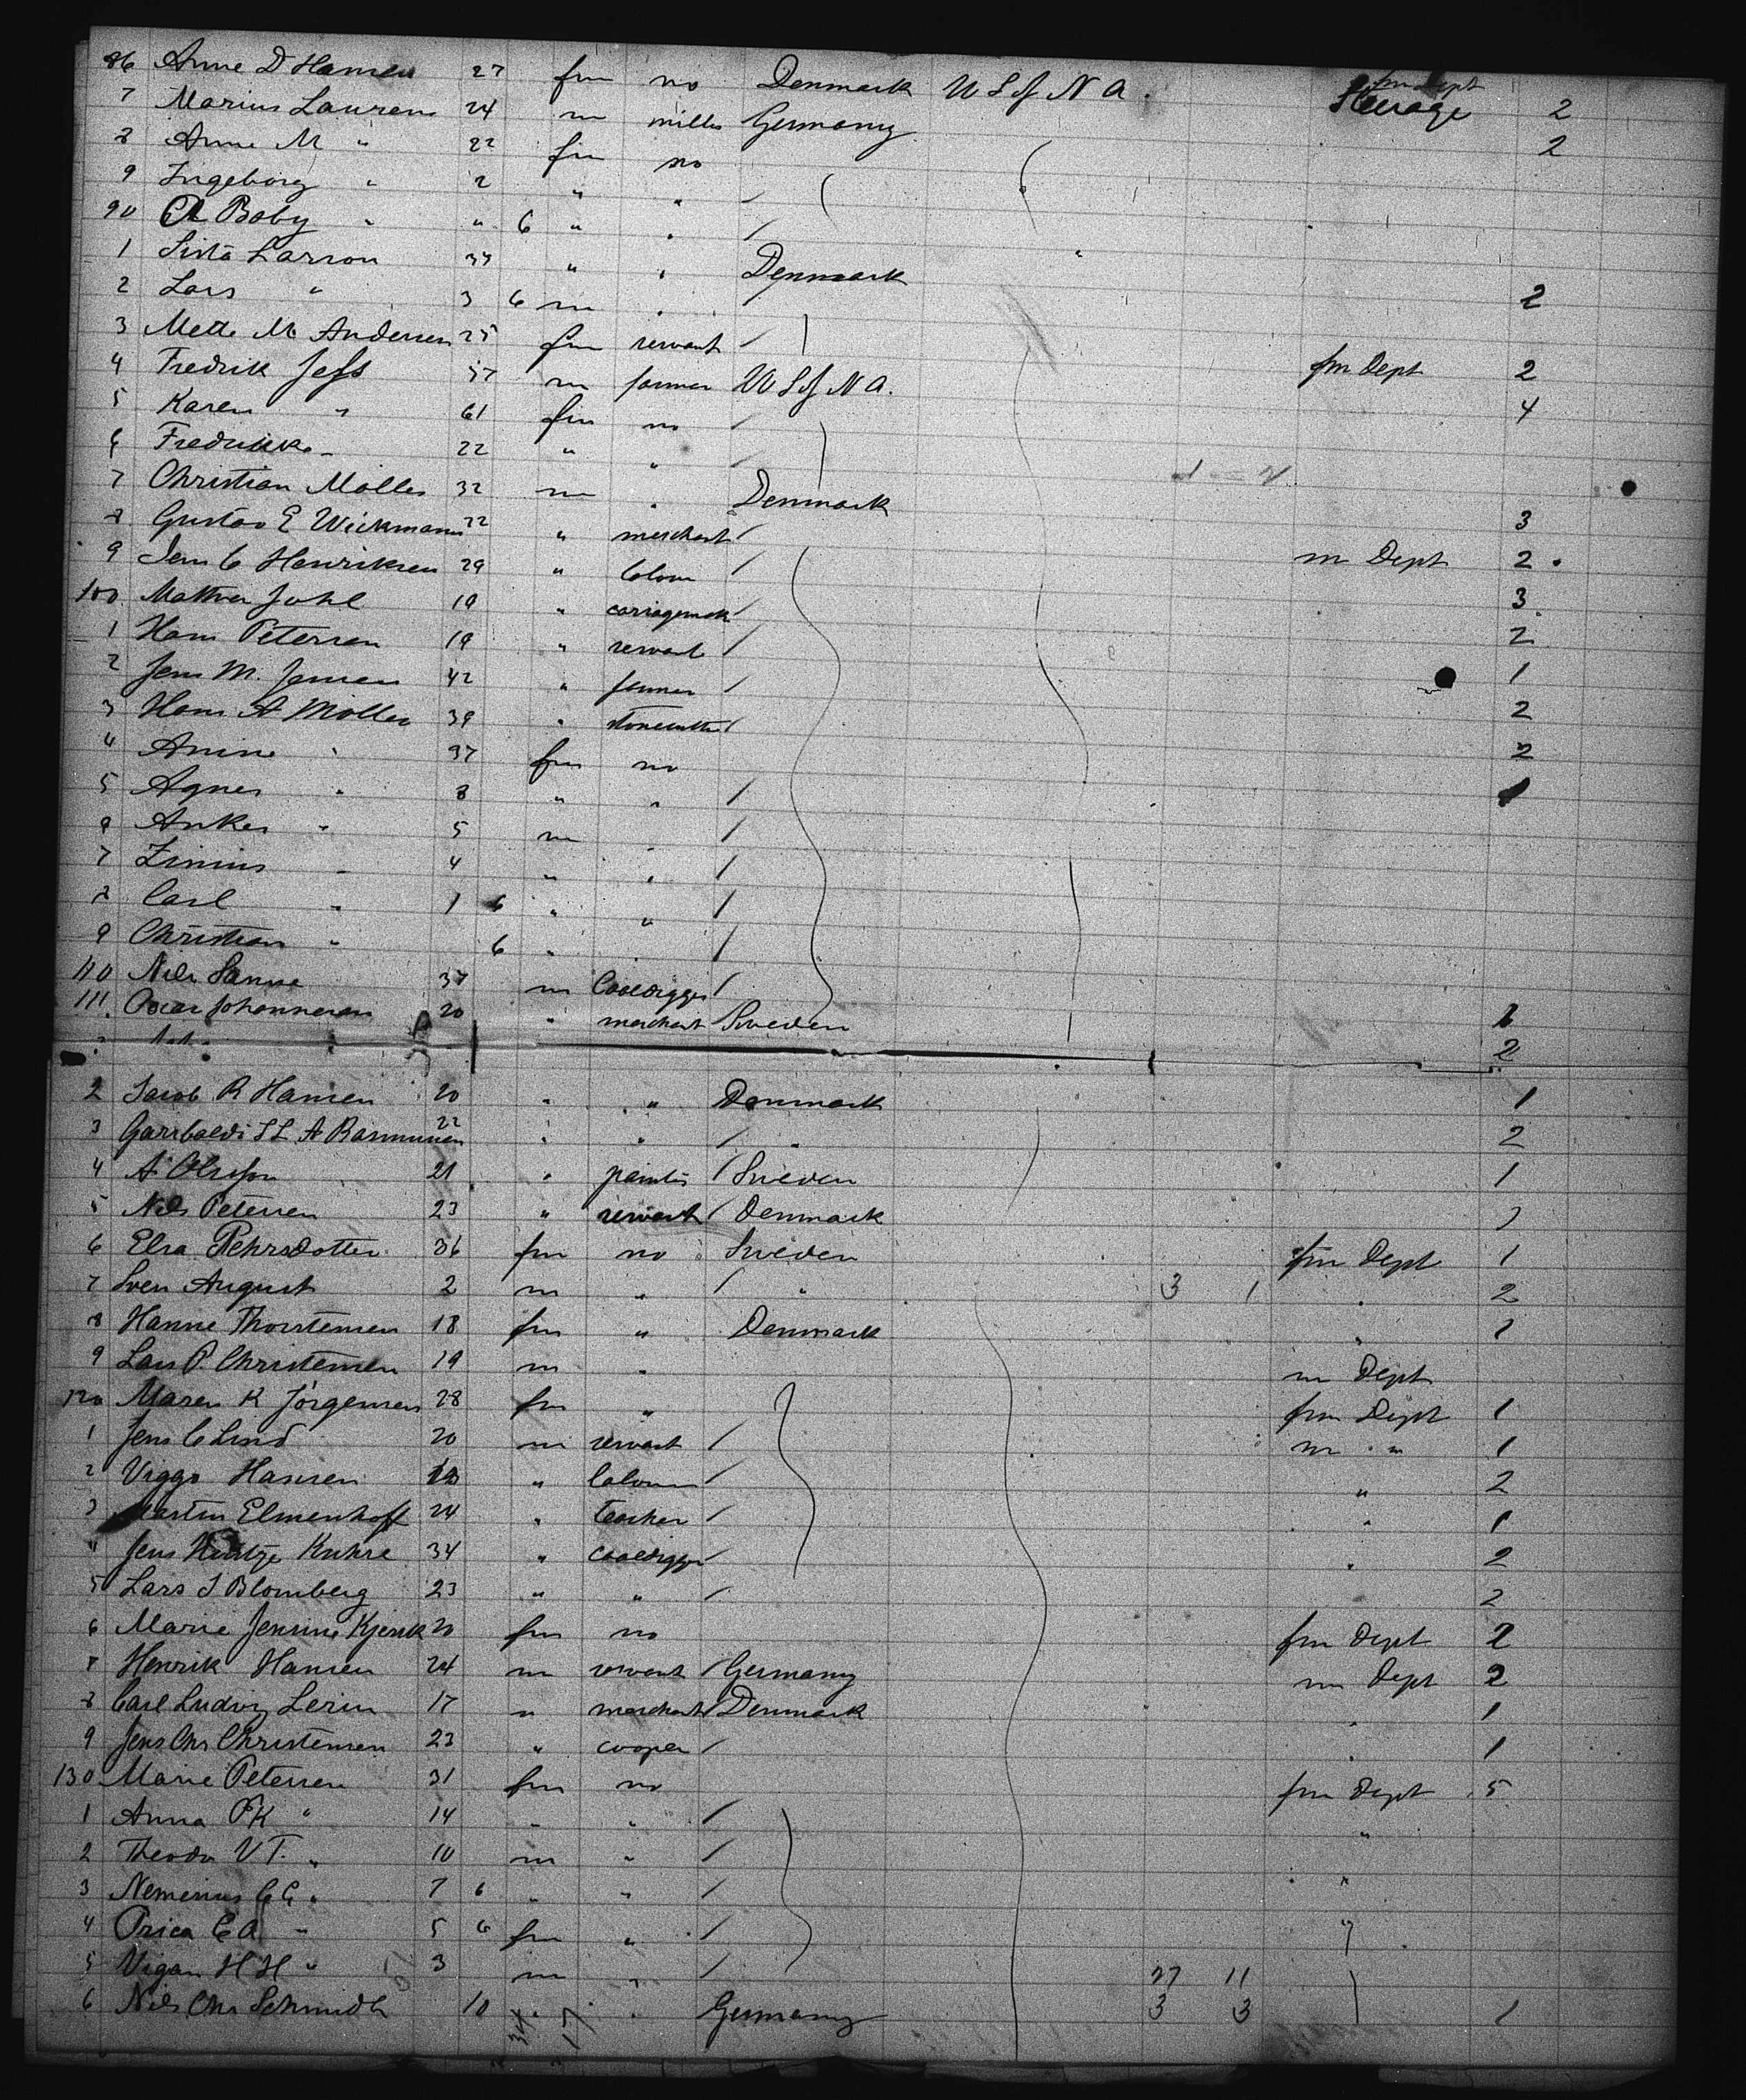 86 Anne D Hansen 27 fm no Denmark U S of N A. fm Dept Steerage 2
7 Marius Laurens 24 m miller Germany 2
8 Anne M " 22 fm no
9 Ingeborg " 2 " " /
90 A Baby " " 6 " " /
1 Sista Larson 37 " " Denmark 2
2 Lars " 3 6 m "
3 Mette M Andersen 25 fm servant / fm Dept 2
4 Fredrik Jess 57 m farmer U S of N A. 4
5 Karen " 61 fm no /
6 Fredrikke " 22 " " /
7 Christian Möller 32 m " Denmark 3
8 Gustav E Wickmann 22 " merchant / m Dept 2
9 Jens C Henriksen 29 " labour / 3
100 Mathea Juhl 19 " cariagemak / 2
1 Hans Petersen 19 " servant / 1
2 Jens M. Jensen 42 " farmer / 2
3 Hans A Möller 39 " stonecutter / 2
4 Anine " 37 fm no 1
5 Agnes " 8 " " /
6 Anker " 5 m " /
7 Zinius " 4 " " /
8 Carl " 1 6 " " /
9 Christian " 6 " " /
110 Nils Sanne 37 m Coaldigger /
111. Oscar Johannesen 20 " merchant Sweden 2
2 Jacob R Hansen 20 " " Denmark 1
3 Garibaldi S L A Rasmussen 22 " " / " 2
4 A Olsson 21 " painter / Sweden 1
5 Nils Petersen 23 " servant / Denmark
6 Elsa Pehrsdotter 36 fm no Sweden fm Dept 1
7 Sven August 2 m " / " 3 1 " 2
8 Hanne Thorstensen 18 fm " Denmark " 1
9 Lars P. Christensen 19 m " m Dept
120 Maren K Jörgensen 28 fm " fm Dept 1
1 Jens C Lind 20 m servant / m " 1
2 Viggo Hansen " labour / " 2
3 Martin Elmenhoff 24 " teacher / " 1
4 Jens Hintze Kuhre 34 " Coaldigger / " 2
5 Lars S Blomberg 23 " " / 2
6 Marie Jensine Kjerik 20 fm no fm Dept 2
7 Henrik Hansen 24 m servant / Germany m Dept 2
8 Carl Ludvig Lerin 17 " merchant / Denmark " 1
9 Jens Chr Christensen 23 " cooper / " 1
130 Marie Petersen 31 fm no fm Dept 5
1 Anna P K " 14 " " / "
2 Theodor V T. " 10 m " /
3 Nemenius C G " 7 6 " " / "
4 Prica C A " 5 6 fm " / "
5 Vigan H H " 3 m " / 27 11
6 Nils Chr Schmidt 10 " " Germany 3 3 1
34 17